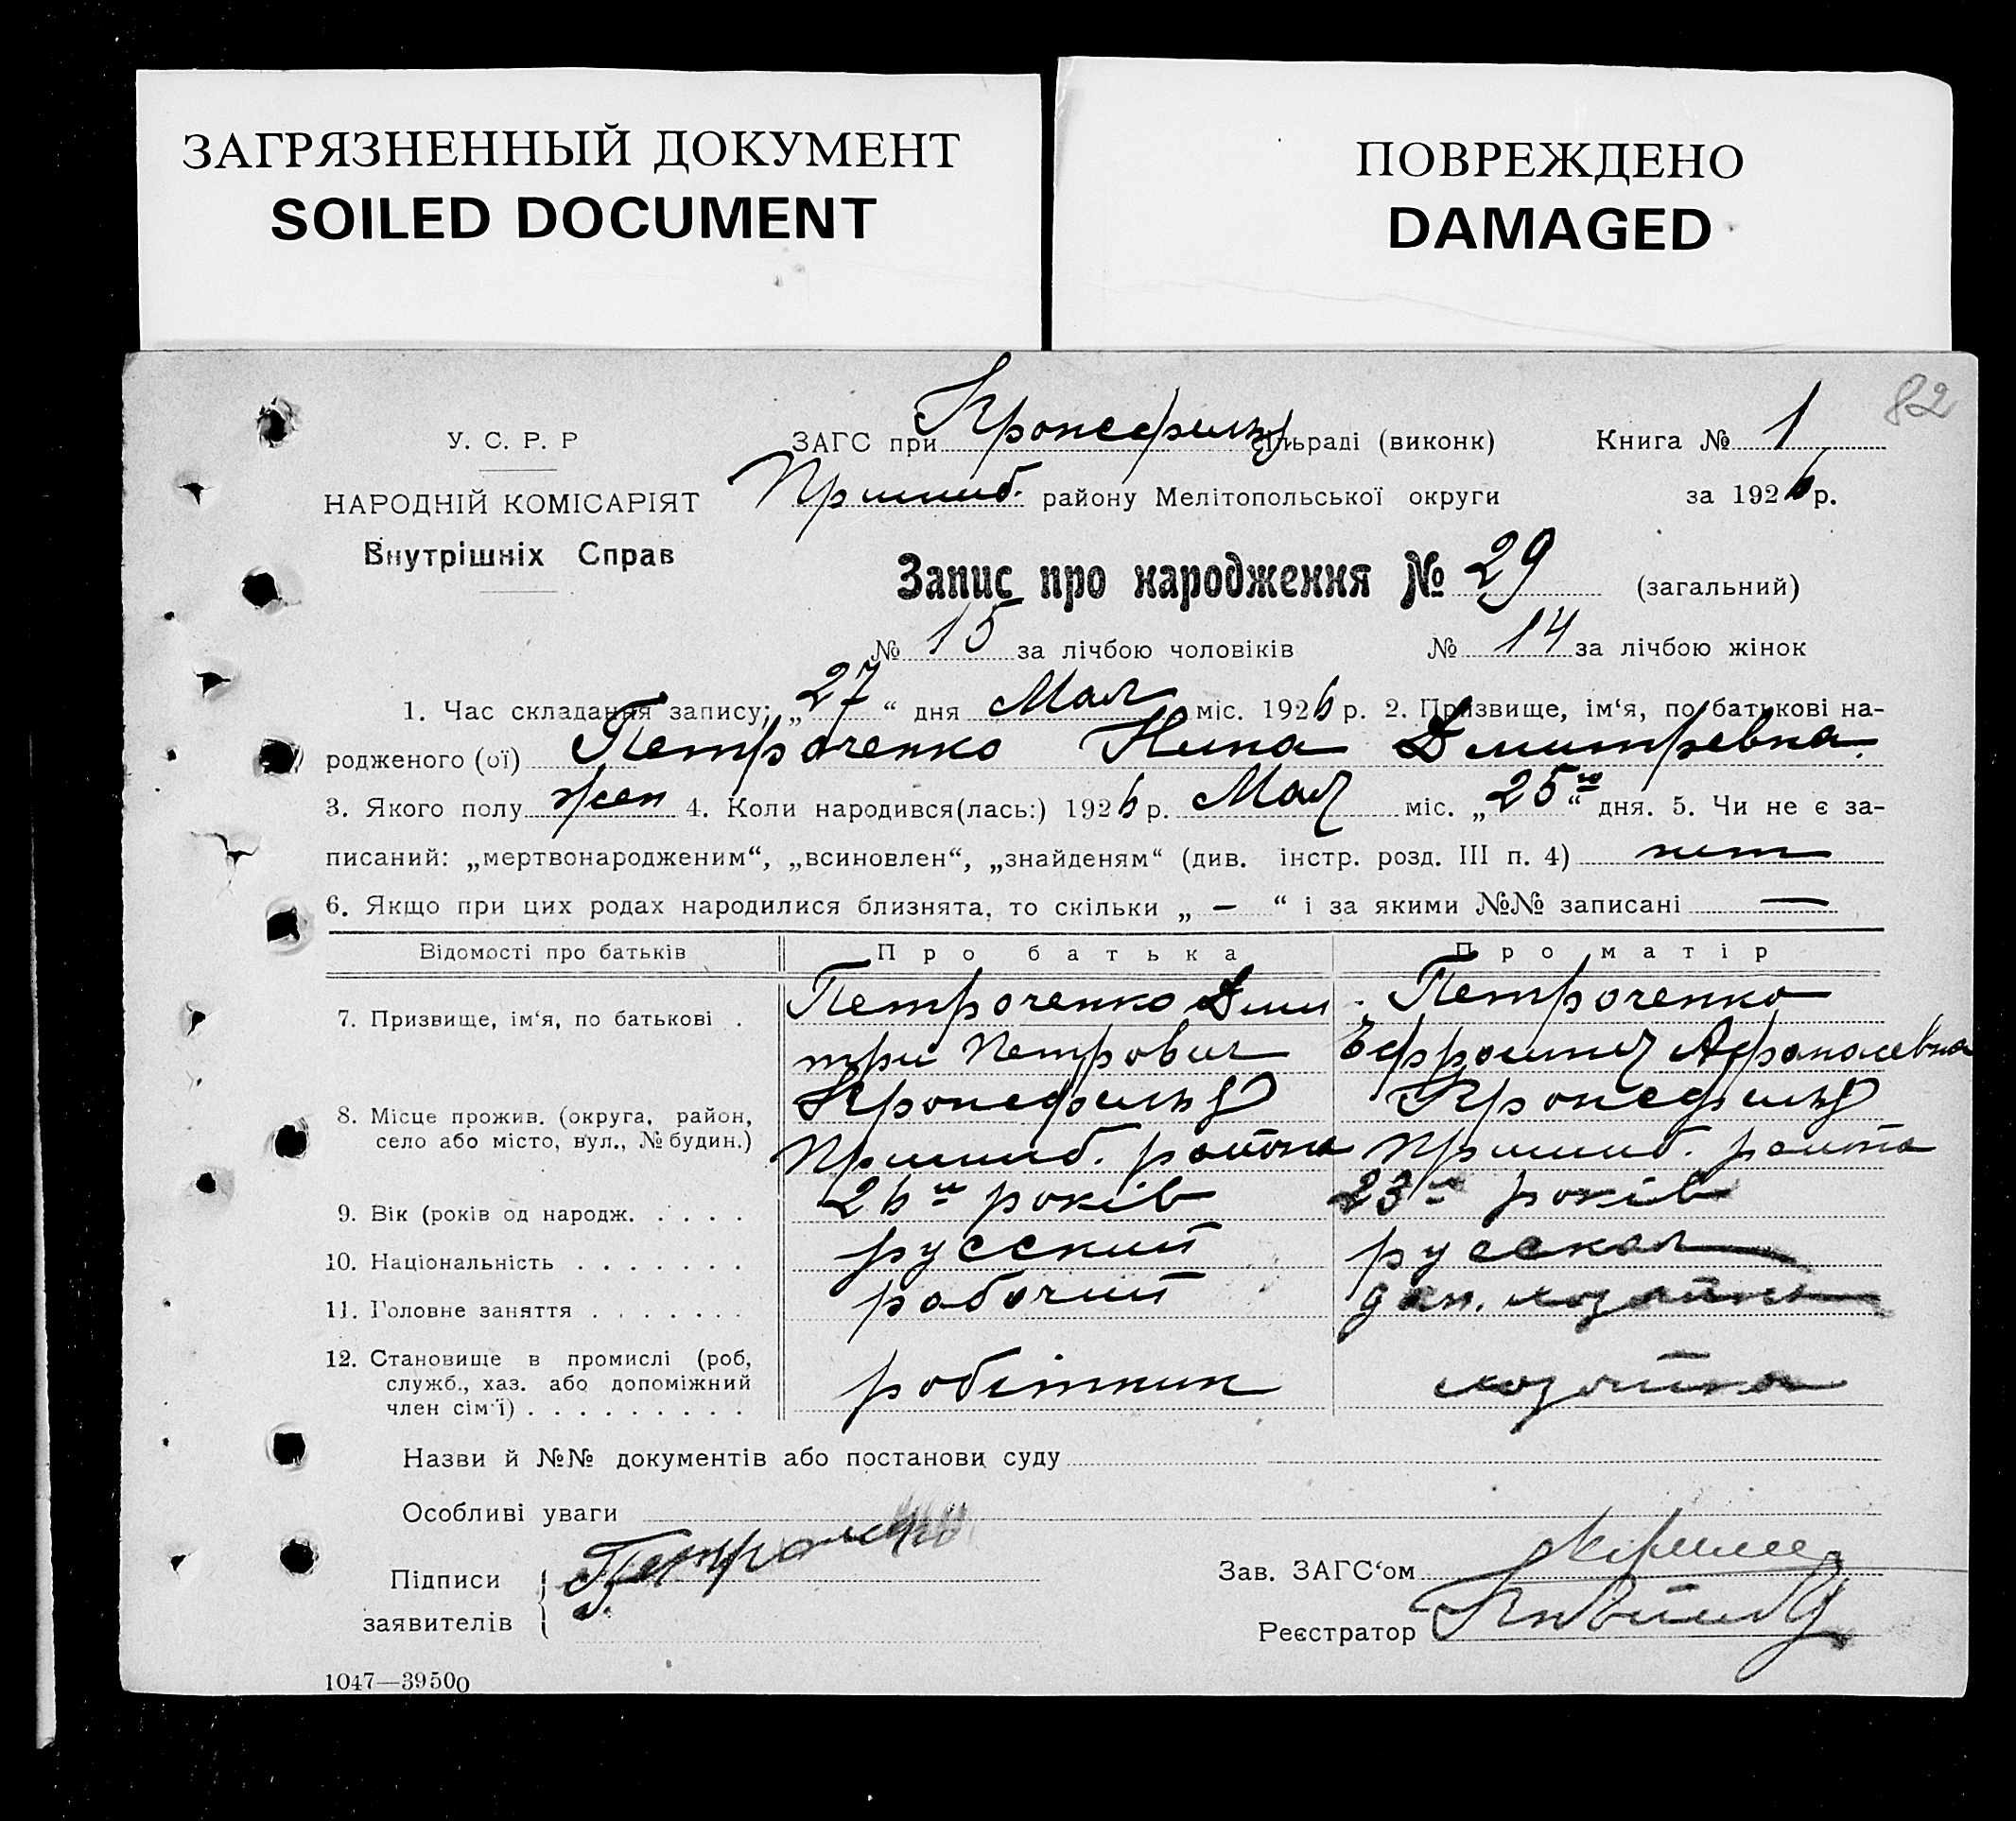 ЗАГРЯЗНЕННЫЙ ДОКУМЕНТ
SOILED DOCUMENT
ПОВРЕЖДЕНО
DAMAGED
82
У. С. Р. Р
НАРОДНІЙ КОМІСАРІЯТ
Внутрішніх Справ
ЗАГС при Кронсфельд сільраді (виконк) Книга № 1
Пришиб. району Мелітопольської округи за 1926 р.
Запис про народження № 29 (загальний)
№ 15 за лічбою чоловіків № 14 за лічбою жінок
1. Час складання запису; „27“ дня Мая міс. 1926 р. 2. Призвище, ім‘я, по батькові на-
родженого (ої) Петроченко Нина Дмитревна.
3. Якого полу жен 4. Коли народився(лась:) 1926 р. Мая міс. „25го“ дня. 5. Чи не є за-
писаний: „мертвонародженим“, „всиновлен“, „знайденям“ (див. інстр. розд. III п. 4) нет
6. Якщо при цих родах народилися близнята, то скільки „ — “ і за якими №№ записані —
Відомості про батьків Про батька Про матір
7. Призвище, ім‘я, по батькові . Петроченко Дми Петроченко
три Петрович Ефросиния Афонасевна
8. Місце прожив. (округа, район, Кронсфельд Кронсфельд
село або місто, вул., № будин.) Пришиб. района Пришиб. района
9. Вік (років од народж. . . . . 26и років 23 років
10. Національність . . . . . . . русский русская
11. Головне заняття . . . . . . . рабочий дом. хозяйка
12. Становище в промислі (роб,
служб., хаз. або допоміжний робітник хозяйка
член сім‘ї) . . . . . . . . .
Назви й №№ документів або постанови суду
Особливі уваги
Підписи
заявителів
Зав. ЗАГС‘ом
Реєстратор
1047—39500